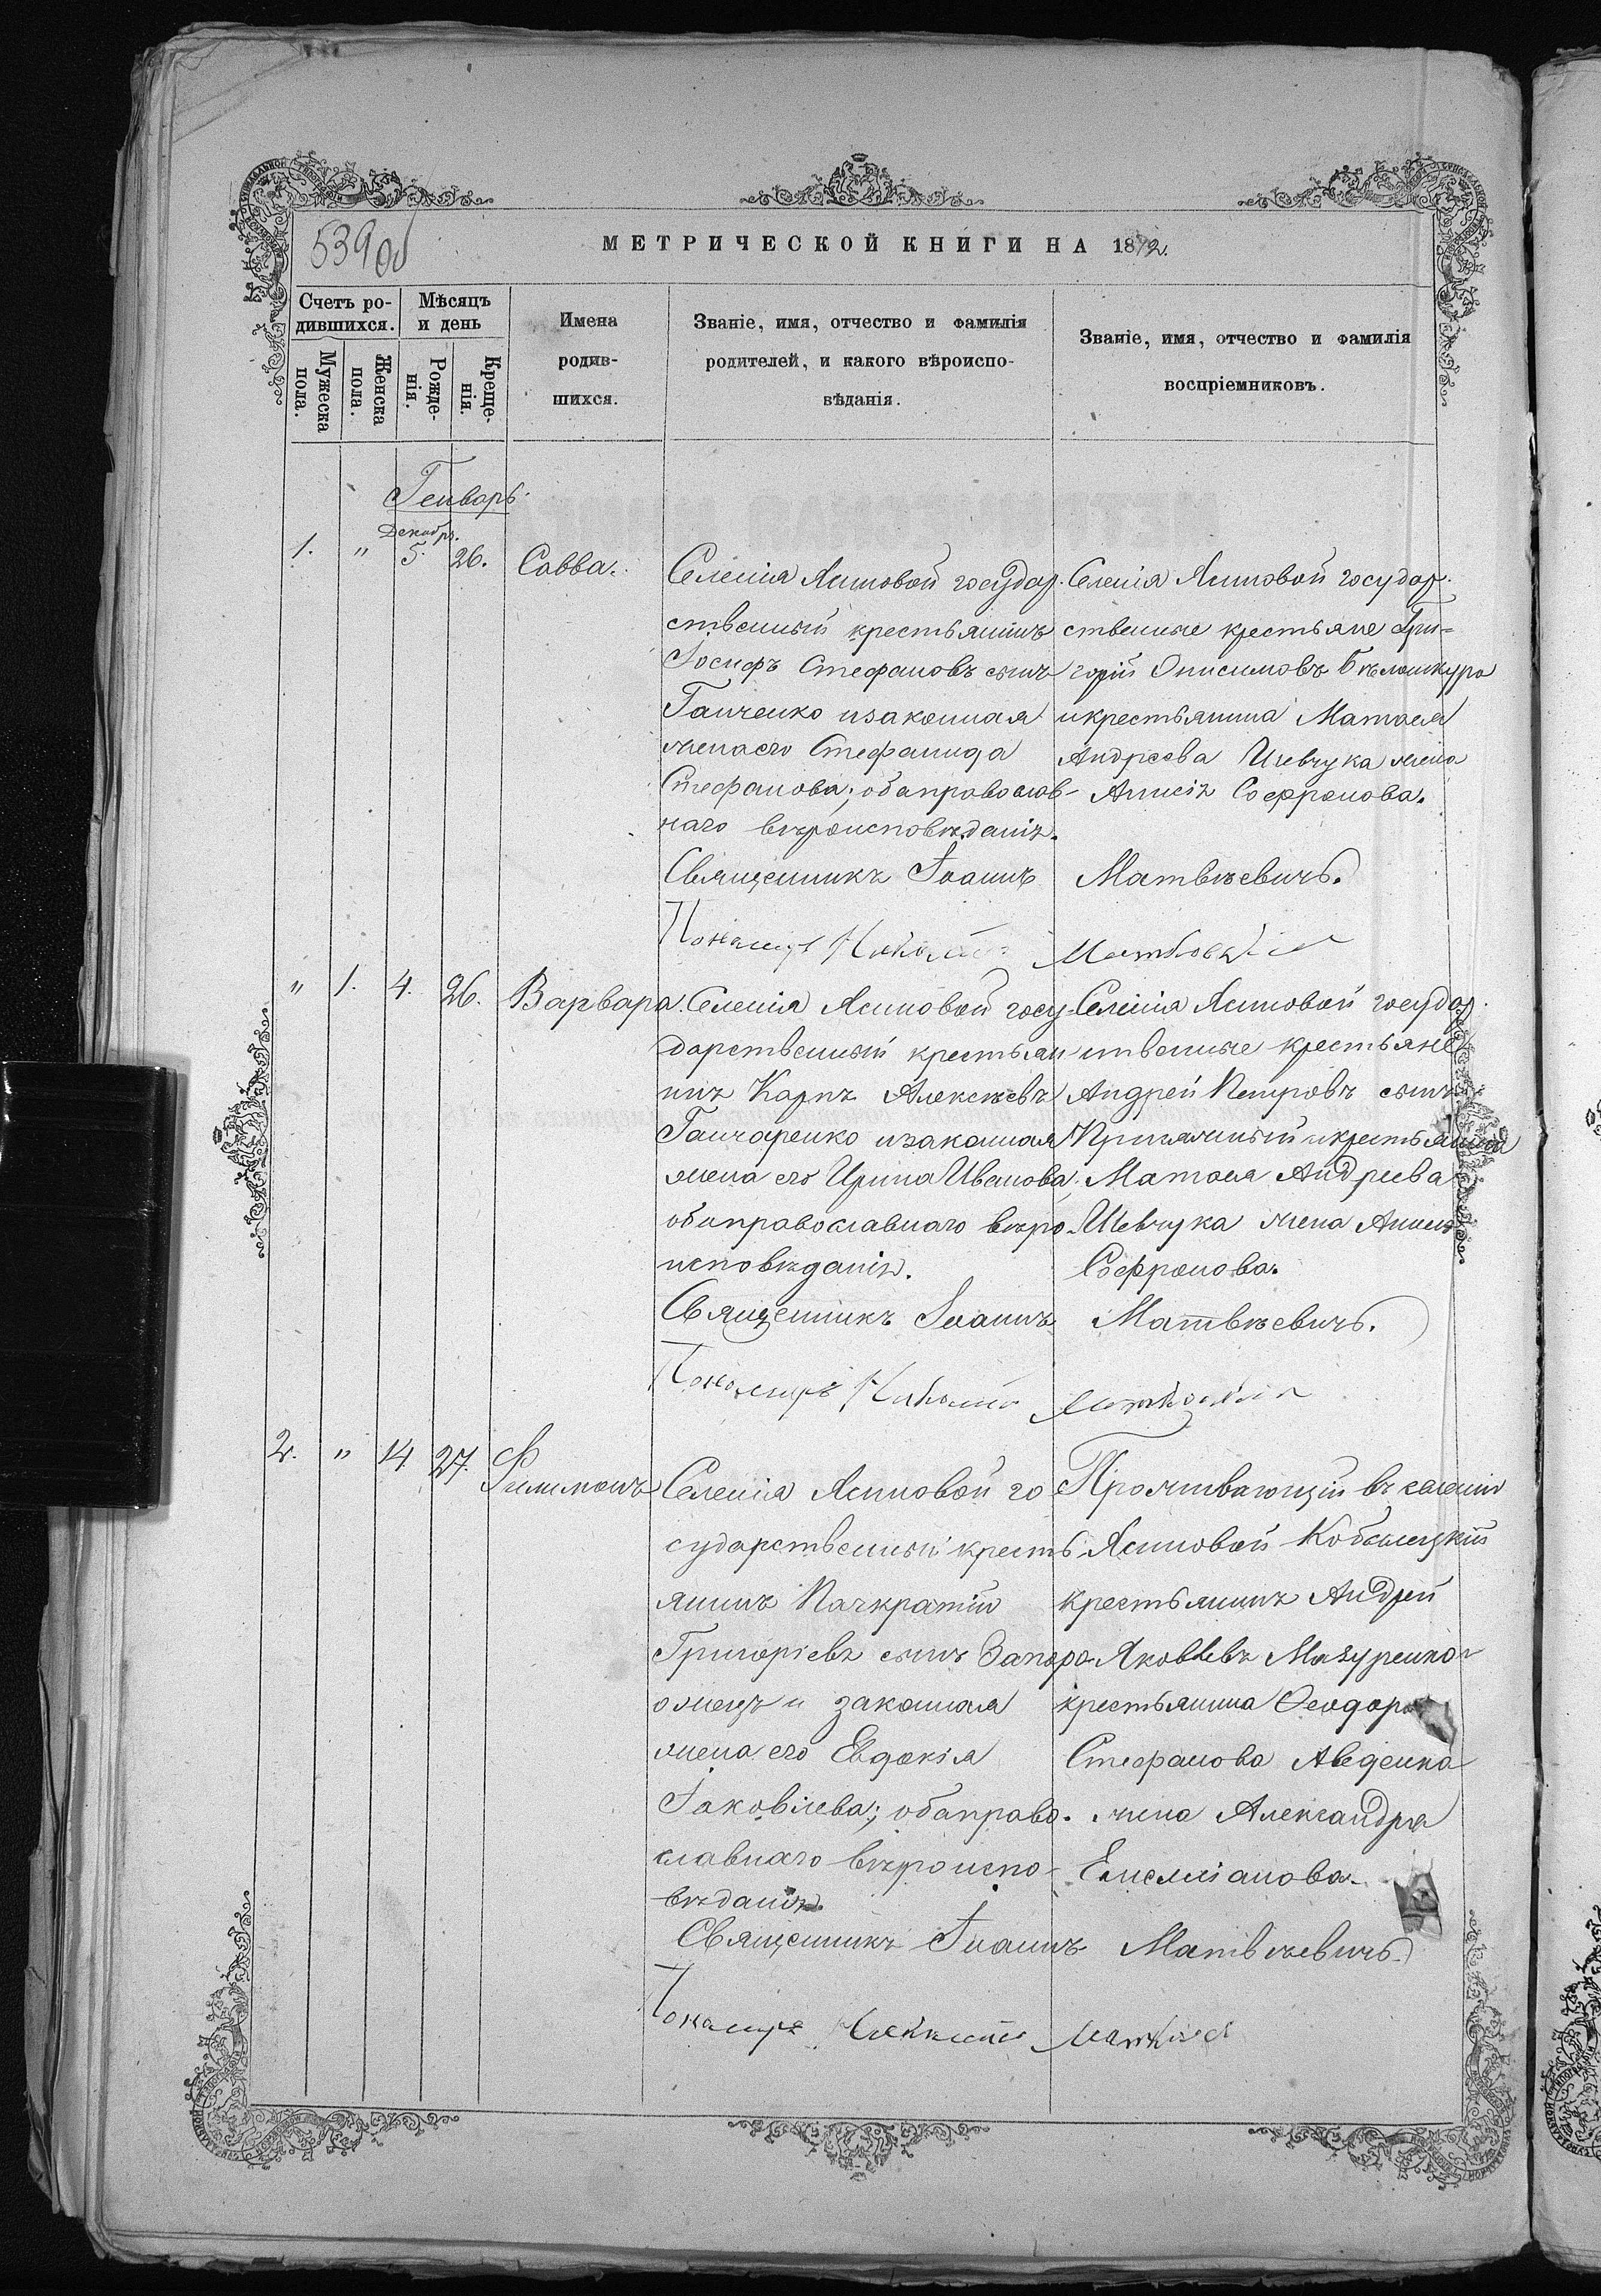 539об
МЕТРИЧЕСКОЙ КНИГИ НА 1872.
Счетъ ро-
дившихся.
Мѣсяцъ
и день
Мужеска
пола.
Женска
пола.
Рожде-
нія.
Креще-
нія.
Имена
родив-
шихся.
Званіе, имя, отчество и фамилія
родителей, и какого вѣроиспо-
вѣданія.
Званіе, имя, отчество и фамилія
воспріемниковъ.
Генварь.
Декабр.
1. " 5. 26. Савва.
Селенія Ясиновой государ-
ственный крестьянинъ
Іосифъ Стефановъ сынъ
Ганченко изаконная
жена его Стефанида
Стефанова; оба православ-
наго вѣроисповѣданія.
Селенія Ясиновой государ-
ственные крестьяне Гри-
горій Онисимовъ Бѣлошкура
икрестьянина Матѳея
Андреева Шевчука жена
Анисія Софронова.
Священникъ Іоаннъ Матвѣевичъ.
Пономарь Николай
" 1. 4. 26. Варвара.
Селенія Ясиновой госу-
дарственный крестьян
инъ Карпъ Алексѣевъ
Ганчаренко изаконная
жена его Ирина Иванова;
оба православнаго вѣро-
исповѣданія.
Селенія Ясиновой государ-
ственные крестьяне
Андрей Петровъ сынъ
икрестьянина
Матѳея Андреева
Шевчука жена Анисія
Софронова.
Священникъ Іоаннъ Матвѣевичъ.
Пономарь Николай
2. " 14. 27. Филимонъ
Селенія Ясиновой го
сударственный кресть
янинъ Панкратій
Григоріевъ сынъ Запоро
ожецъ и законная
жена его Евдокія
Іаковлева; оба право-
славнаго вѣроиспо-
вѣданія.
Проживающій въ селеніи
Ясиновой
крестьянинъ Андрей
Яковлевъ Мазуренко и
крестьянина Ѳеодора
Стефанова Авденка
жена Александра
Емеліанова.
Священникъ Іоаннъ Матвѣевичъ.
Пономарь Николай